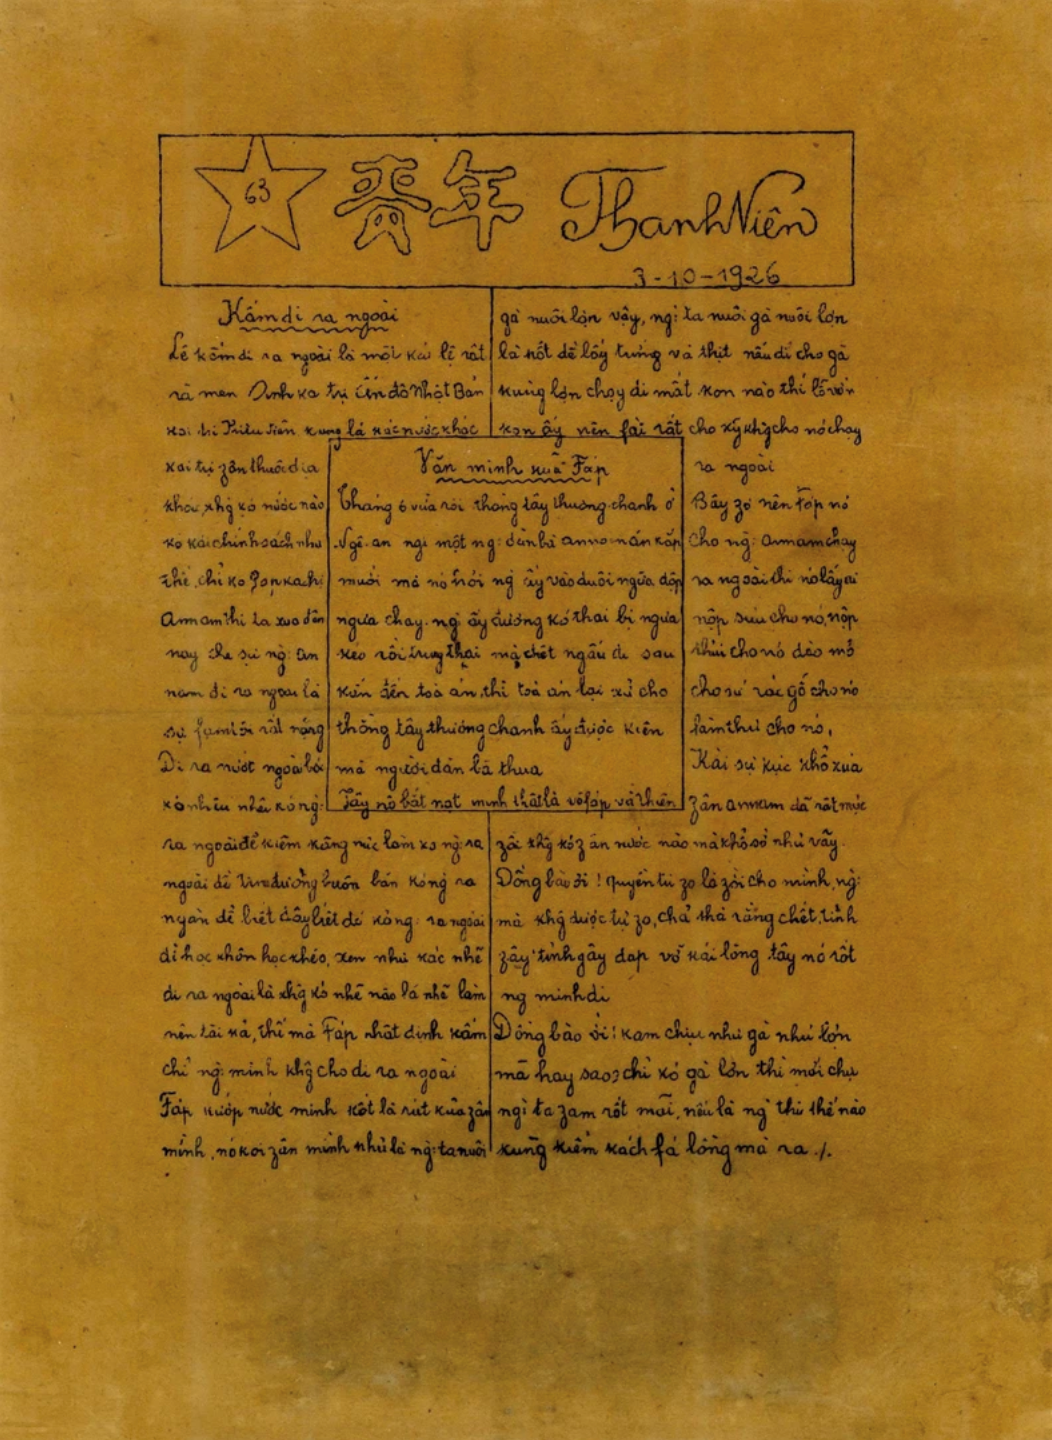 63 青年 Thanh Niên
3-10-1926
Kấm đi ra ngoài
Lệ kấm đi ra ngoài là một kái lệ rất
rã man Anh ka trị Ấn độ Nhật Bản
kai trị Triều Tiên kung là kác nước khác
kai trị zân thuôc địa
khác, khg̀ kó nước nào
kó kái chính sách như
thế, chỉ kó Fáp kachị
Annam thì ta xưa đến
nay che sự ng: An
nam đi ra ngoài là
sự fạm tội rất nặng
Đi ra nước ngoài bởi
kó nhiều nhẽ kó ng:
ra ngoài để kiếm kông việc làm kó ng: ra
ngoài để buôn bán kó ng: ra
ngoài để biết đây biết đó kó ng: ra ngoài
để học khôn học khéo, xem như kác nhẽ
đi ra ngoài là khg̀ kó nhẽ nào là nhẽ làm
nên tội kả, thế mà Fáp nhất định kấm
chỉ ng: mình khg̀ cho đi ra ngoài
Fáp kướp nước mình kốt là rút kủa zân
mình, nó koi zân mình như là ng: ta nuôi
gà nuôi lợn vậy, ng: ta nuôi gà nuôi lợn
là kốt để lấy trứng và thịt nếu để cho gà
kung lợn chạy đi mất kon nào thì lỗ vốn
kon ấy nên fải rất cho kỹ khg̀ cho nó chạy
ra ngoài
Bây zờ nên Fáp nó
cho ng: Annam chạy
ra ngoài thì nó lấy ai
nộp sưu cho nó, nộp
thuế cho nó đào mỏ
cho nó gỗ cho nó
làm thư cho nó,
Kái sự kực khổ kủa
zân annam đã rất mực
zồi khg̀ kó zân nước nào mà khổ sở như vậy.
Đồng bào ơi! Quyền tự zo là zời cho mình, ng:
mà khg̀ được tự zo, chả thà rằng chết, tỉnh
zậy tỉnh zậy đạp vỡ kái lồng tây nó nhốt
ng mình đi
Đồng bào ơi! kam chịu như gà như lợn
mã hay sao? chỉ kó gà lợn thì mới chịu
ngì ta zam nhốt mãi, nếu là ng: thì thế nào
kung kiếm kách fá lồng mà ra./.
Văn minh kuả Fáp
Tháng 6 vừa rồi thằng tây thương chanh ở
Ngệ-an nghi một ng: đàn bà annam ăn kắp
muối mà nó trói ng: ấy vào đuôi ngựa, đập
ngựa chạy. ng: ấy đương kó thai bị ngựa
kéo rồi trụy thai mà chết ngấu đi sau
kiện đến toà án, thì toà án lại xử cho
thằng tây thương chanh ấy được kiện
mà người đàn bà thua
Tây nó bắt nạt mình thật là vô fáp vô thiên